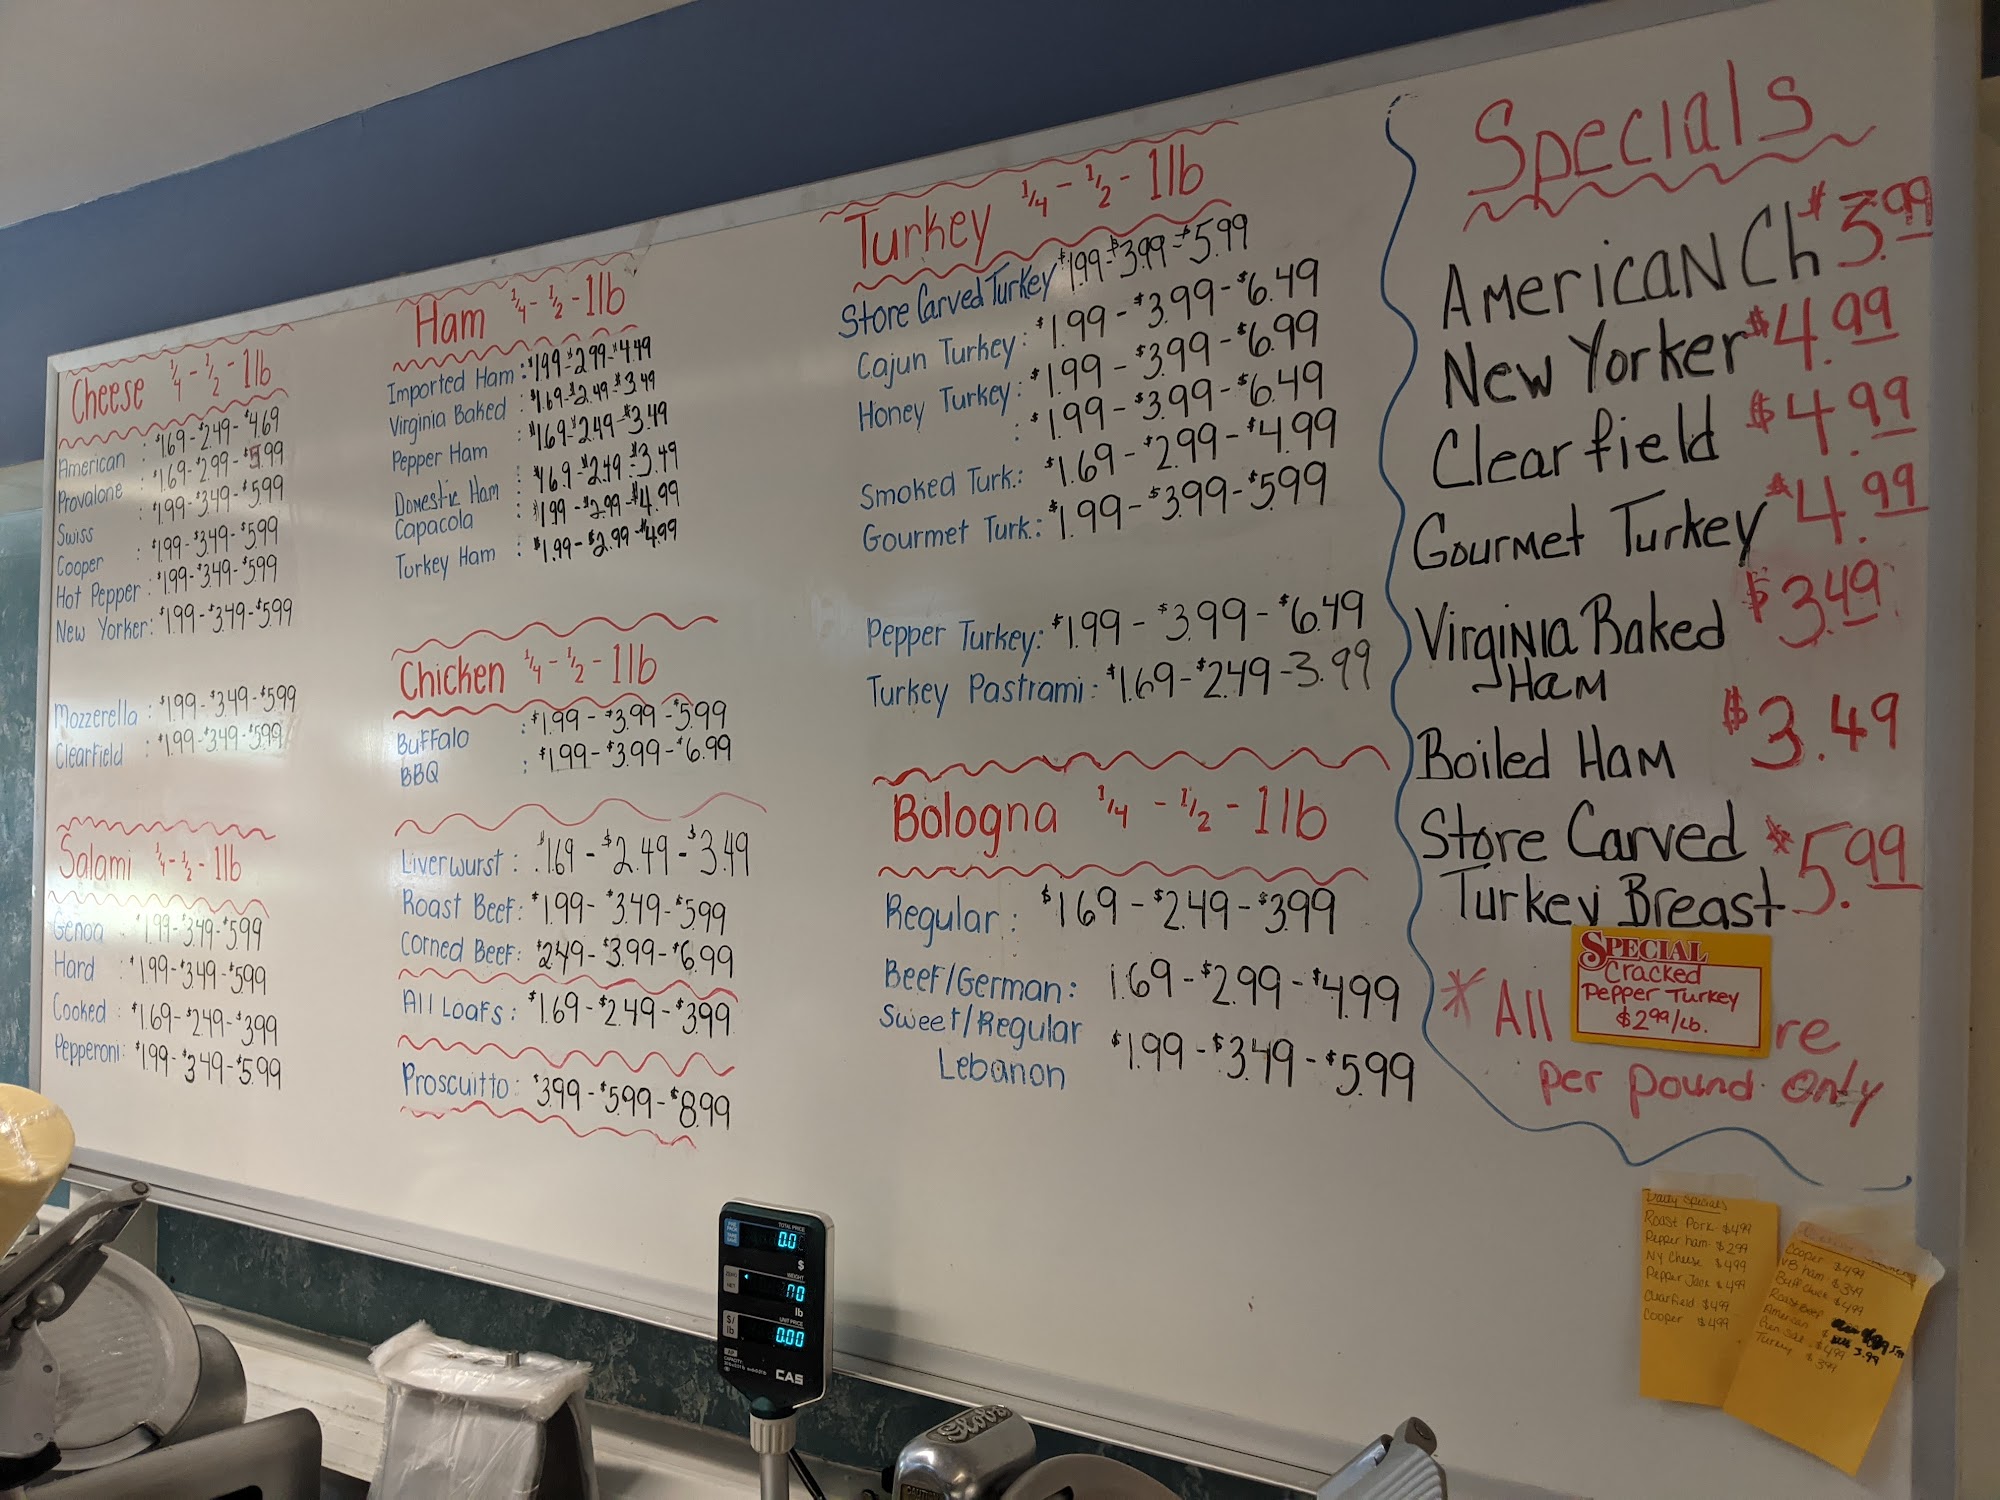 Cheese 1/4 - 1/2 - 1lb
American : $1.69 - $2.49 - $4.69
Provalone : $1.69 - $2.99 - $5.99
Swiss : $1.99 - $3.49 - $5.99
Cooper : $1.99 - $3.49 - $5.99
Hot Pepper : $1.99 - $3.49 - $5.99
New Yorker: $1.99 - $3.49 - $5.99
Mozzerella : $1.99 - $3.49 - $5.99
Clearfield : $1.99 - $3.49 - $5.99
Salami 1/4 - 1/2 - 1lb
Genoa : $1.99 - $3.49 - $5.99
Hard : $1.99 - $3.49 - $5.99
Cooked : $1.69 - $2.49 - $3.99
Pepperoni: $1.99 - $3.49 - $5.99
Ham 1/4 - 1/2 - 1lb
Imported Ham : $1.99 - $2.99 - $4.49
Virginia Baked : $1.69 - $2.49 - $3.49
Pepper Ham : $1.69 - $2.49 - $3.49
Domestic Ham : $1.69 - $2.49 - $3.49
Capacola : $1.99 - $2.99 - $4.99
Turkey Ham : $1.99 - $2.99 - $4.99
Chicken 1/4 - 1/2 - 1lb
Buffalo : $1.99 - $3.99 - $5.99
BBQ : $1.99 - $3.99 - $6.99
Liverwurst : $1.69 - $2.49 - $3.49
Roast Beef: $1.99 - $3.49 - $5.99
Corned Beef: $2.49 - $3.99 - $6.99
All Loafs : $1.69 - $2.49 - $3.99
Proscuitto: $3.99 - $5.99 - $8.99
Turkey 1/4 - 1/2 - 1lb
Store Carved Turkey $1.99 - $3.99 - $5.99
Cajun Turkey: $1.99 - $3.99 - $6.49
Honey Turkey: $1.99 - $3.99 - $6.99
: $1.99 - $3.99 - $6.49
Smoked Turk.: $1.69 - $2.99 - $4.99
Gourmet Turk.: $1.99 - $3.99 - $5.99
Pepper Turkey: $1.99 - $3.99 - $6.49
Turkey Pastrami: $1.69 - $2.49 - 3.99
Bologna 1/4 - 1/2 - 1lb
Regular : $1.69 - $2.49 - $3.99
Beef/German: 1.69 - $2.99 - $4.99
Sweet/Regular
Lebanon $1.99 - $3.49 - $5.99
Specials
American Ch $3.99
New Yorker $4.99
Clearfield $4.99
Gourmet Turkey $4.99
Virginia Baked $3.49
Ham
Boiled Ham $3.49
Store Carved
Turkey Breast $5.99
SPECIAL
Cracked
Pepper Turkey
$2.99/Lb.
* All re
per pound only
Daily Specials
Roast Pork $4.99
Pepper ham $2.99
NY Cheese $4.99
Pepper Jack $4.99
Clearfield $4.99
Cooper $4.99
Cooper $4.99
VB ham $3.49
Buff Chick $4.99
Roast Beef
American 3.99
$4.99
Turkey $3.99
TOTAL PRICE
0.0
$
WEIGHT
lb
UNIT PRICE
$/lb
0.00
CAS
Globe